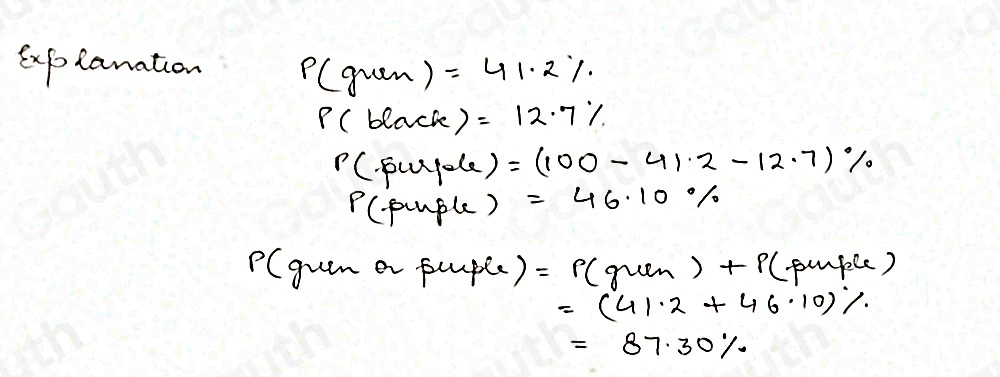 Explanation
P(green) = 41.2%.
P(black) = 12.7%
P(purple) = (100 - 41.2 - 12.7)%
P(purple) = 46.10 %
P(green or purple) = P(green) + P(purple)
= (41.2 + 46.10)%.
= 87.30%
Gauth